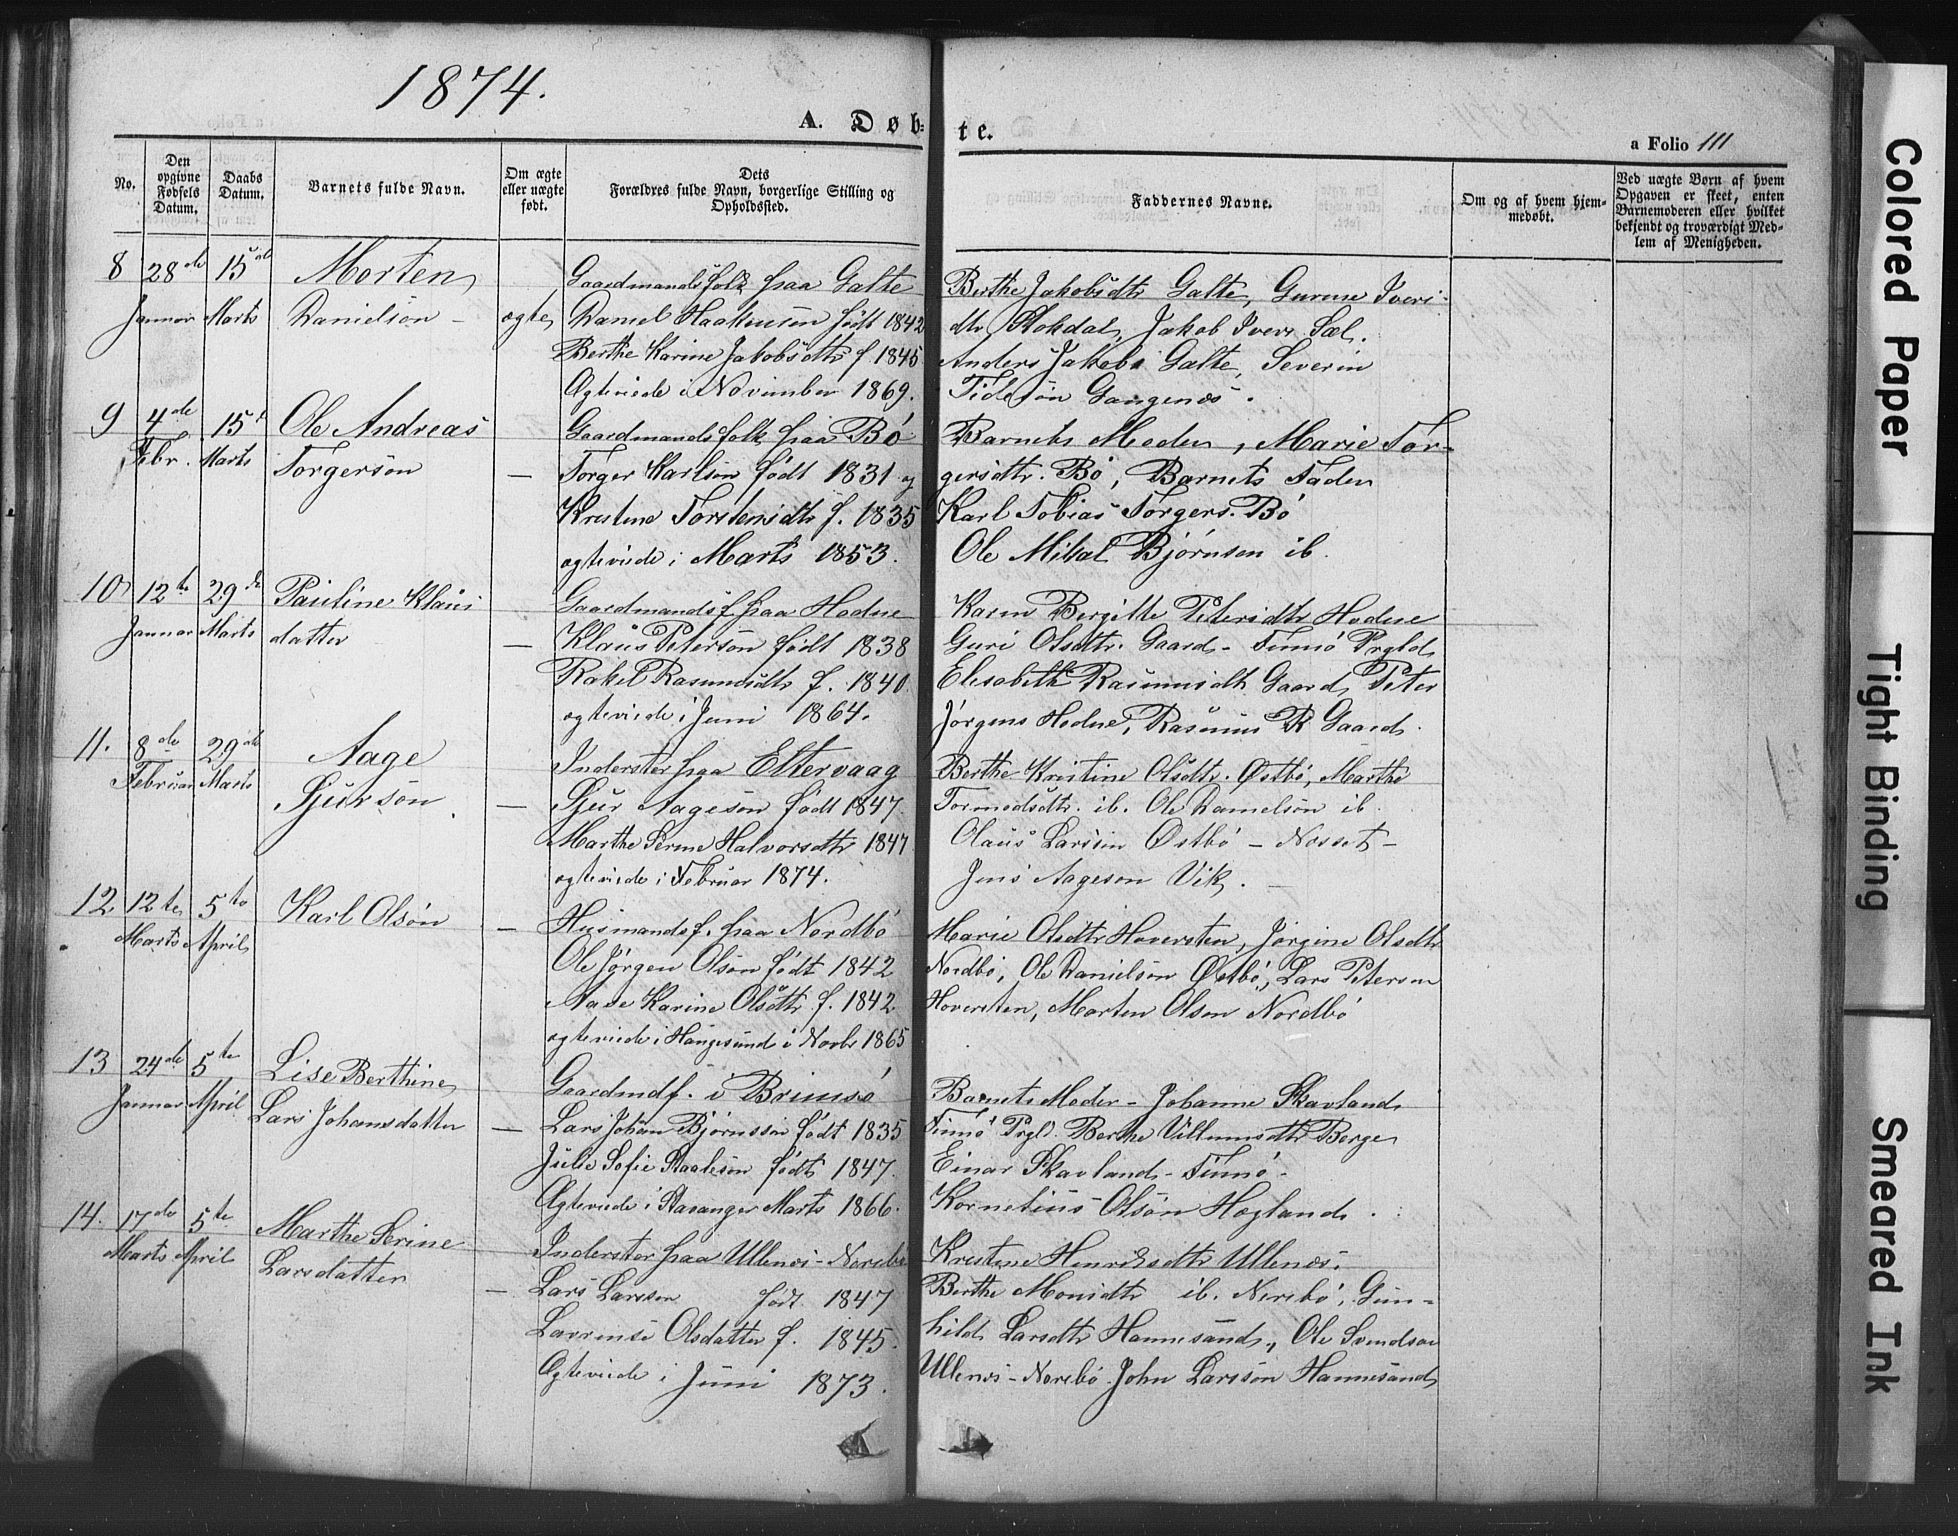 1874.
A. Døb-
te.
a Folio 111
No.
Den opgivne Fødsels Datum.
Daabs Datum.
Barnets fulde Navn.
Om ægte eller uægte født.
Dets Forældres fulde Navn, borgerlige Stilling og Opholdssted.
Faddernes Navne.
Om og af hvem hjemmedøbt.
Ved uægte Børn af hvem Opgaven er skeet, enten Barnemoderen eller hvilket bekjendt og troværdigt Medlem af Menigheden.
8 28de Januar 15de Marts Morten Danielsøn ægte
Gaardmandsfolk paa Galte
Daniel Haakensen født 1842
Berthe Karine Jakobsdtr f. 1845
Ægteviede i November 1869.
Berthe Jakobsdtr Galte, Gurine Ivers-
dtr Stokdal, Jakob Ivers. Sæl.
Anders Jakobs Galte, Severin
Tidesøn Gangenæs.
9 4de Febr. 15de Marts Ole Andreas Torgersøn —
Gaardmandsfolk paa Bö
Torger Karlsøn født 1831 og
Kristine Torstensdtr f. 1835
ægteviede i Marts 1853.
Barnets Moder, Marie Tor-
gersdtr. Bö, Barnets Fader
Karl Tobias Torgers. Bö
Ole Mikal Bjørnsen ib.
10 12te Januar 29de Marts Pauline Klaus datter —
Gaardmandsf. paa Hodne
Klaus Petersøn født 1838
Rakel Rasmusdtr f. 1840
ægteviede i Juni 1864.
Karen Bergitte Petersdtr Hodne
Guri Olsdtr. Gaard - Finnö Prgld
Elisabeth Rasmusdtr Gaard, Peter
Jørgens Hodne, Rasmus R Gaard.
11. 8de Februar 29de Marts Aage Sjursøn. —
Inderster paa Eltervaag
Sjur Aagesøn født 1847.
Marthe Serine Halvorsdtr 1847
ægteviede i Februar 1874.
Berthe Kristine Olsdtr. Østbö, Marthe
Tormodsdtr. ib. Ole Danielsøn ib.
Olaus Larssen Østbö - Nosset -
Jens Aagesøn Vik.
12 12te Marts 5te April Karl Olsøn —
Husmandsf. paa Nordbö
Ole Jørgen Olsøn født 1842
Aase Karine Olsdtr f. 1842
ægteviede i Haugesund i Novbr 1865
Marie Olsdtr Hoversten, Jørgine Olsdtr
Nordbö, Ole Danielsøn Østbö, Lars Petersen
Hoversten, Morten Olsen Nordbö
13 24de Januar 5te April Lise Berthine Lars Johansdatter —
Gaardmdf. i Brimsö
Lars Johan Bjørnssøn født 1835
Julie Sofie Staalesøn født 1847.
Ægteviede i Stavanger Marts 1866.
Barnets Moder - Johanne Skavland
Finnö Prgld. Berthe Villumsdtr Berge
Einar Skavland - Finnö -
Kornelius Olsøn Hegland.
14. 17de Marts 5te April Marthe Serine Larsdatter —
Inderster paa Ullenes - Norebø
Lars Larssen født 1847
Lavrense Olsdatter f. 1845.
Ægteviede i Juni 1873.
Kristine Henriksdtr Ullenæs.
Berthe Monsdtr ib. Norebö, Gun-
hild Larsdtr Hannesand, Ole Svendsøn
Ullenes - Norebö. John Larssøn Hannesand
Colored Paper
Tight Binding
Smeared Ink